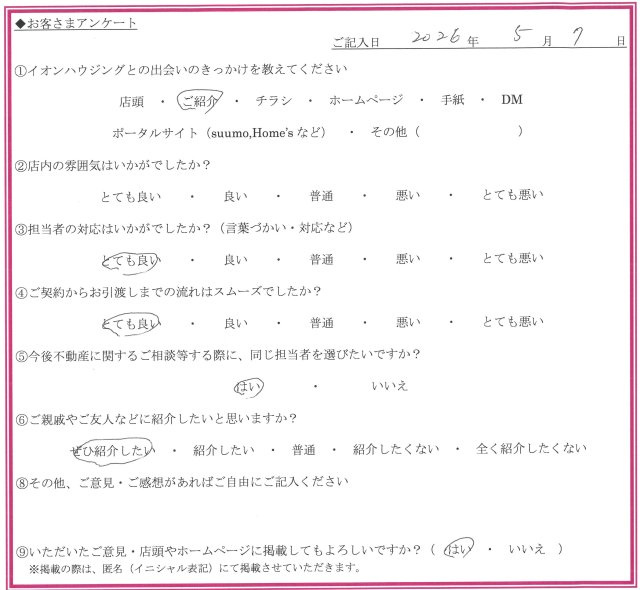 ◆お客さまアンケート
ご記入日 2026 年 5 月 7 日
①イオンハウジングとの出会いのきっかけを教えてください
店頭 ・ ご紹介 ・ チラシ ・ ホームページ ・ 手紙 ・ DM
ポータルサイト（suumo,Home'sなど） ・ その他（ ）
②店内の雰囲気はいかがでしたか？
とても良い ・ 良い ・ 普通 ・ 悪い ・ とても悪い
③担当者の対応はいかがでしたか？（言葉づかい・対応など）
とても良い ・ 良い ・ 普通 ・ 悪い ・ とても悪い
④ご契約からお引渡しまでの流れはスムーズでしたか？
とても良い ・ 良い ・ 普通 ・ 悪い ・ とても悪い
⑤今後不動産に関するご相談等する際に、同じ担当者を選びたいですか？
はい ・ いいえ
⑥ご親戚やご友人などに紹介したいと思いますか？
ぜひ紹介したい ・ 紹介したい ・ 普通 ・ 紹介したくない ・ 全く紹介したくない
⑧その他、ご意見・ご感想があればご自由にご記入ください
⑨いただいたご意見・店頭やホームページに掲載してもよろしいですか？（ はい ・ いいえ ）
※掲載の際は、匿名（イニシャル表記）にて掲載させていただきます。